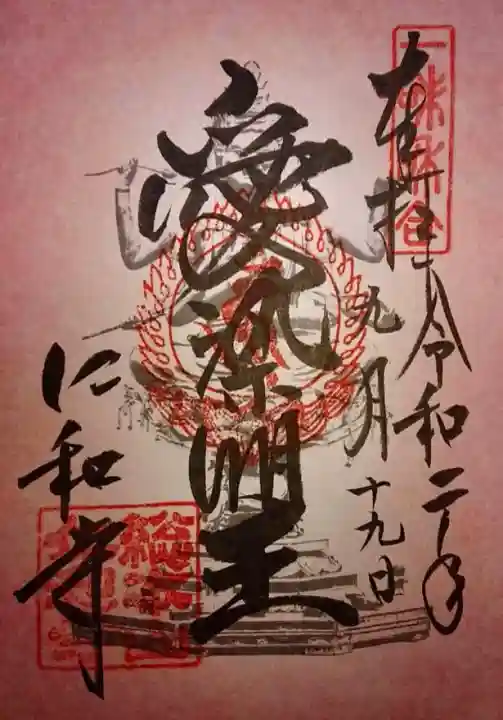 奉拝
令和二年
九月十九日
愛染明王
仁和寺